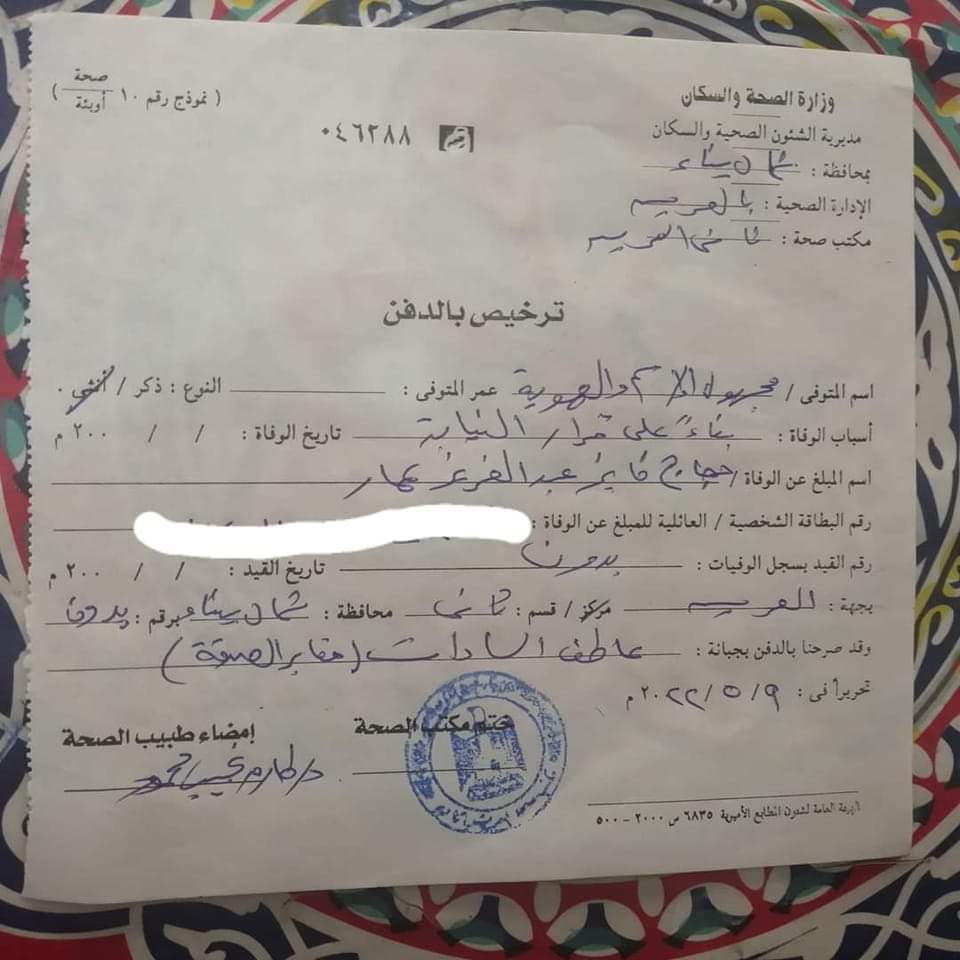 وزارة الصحة والسكان
( نموذج رقم ١٠ صحة / أوبئة )
مديرية الشئون الصحية والسكان
رقم ٠٤٦٢٨٨
بمحافظة : شمال سيناء
الإدارة الصحية : بالعريش
مكتب صحة : ثانى العريش
ترخيص بالدفن
اسم المتوفى / مجهول الاسم والهوية عمر المتوفى : النوع : ذكر / أنثى .
أسباب الوفاة : بناءً على قرار النيابة تاريخ الوفاة : / / ٢٠٠ م
اسم المبلغ عن الوفاة / حجاج فايز عبد العزيز عمار
رقم البطاقة الشخصية / العائلية للمبلغ عن الوفاة :
رقم القيد بسجل الوفيات : بدون تاريخ القيد : / / ٢٠٠ م
بجهة : العريش مركز / قسم : ثانى محافظة : شمال سيناء برقم : بدون
وقد صرحنا بالدفن بجبانة : عاطف السادات ( مقابر الصدقة )
تحريراً فى : ٩ / ٥ / ٢٠٢٢ م
ختم مكتب الصحة
إمضاء طبيب الصحة
الهيئة العامة لشئون المطابع الأميرية ٦٨٣٥ س ٢٠٠٠ - ٥٠٠